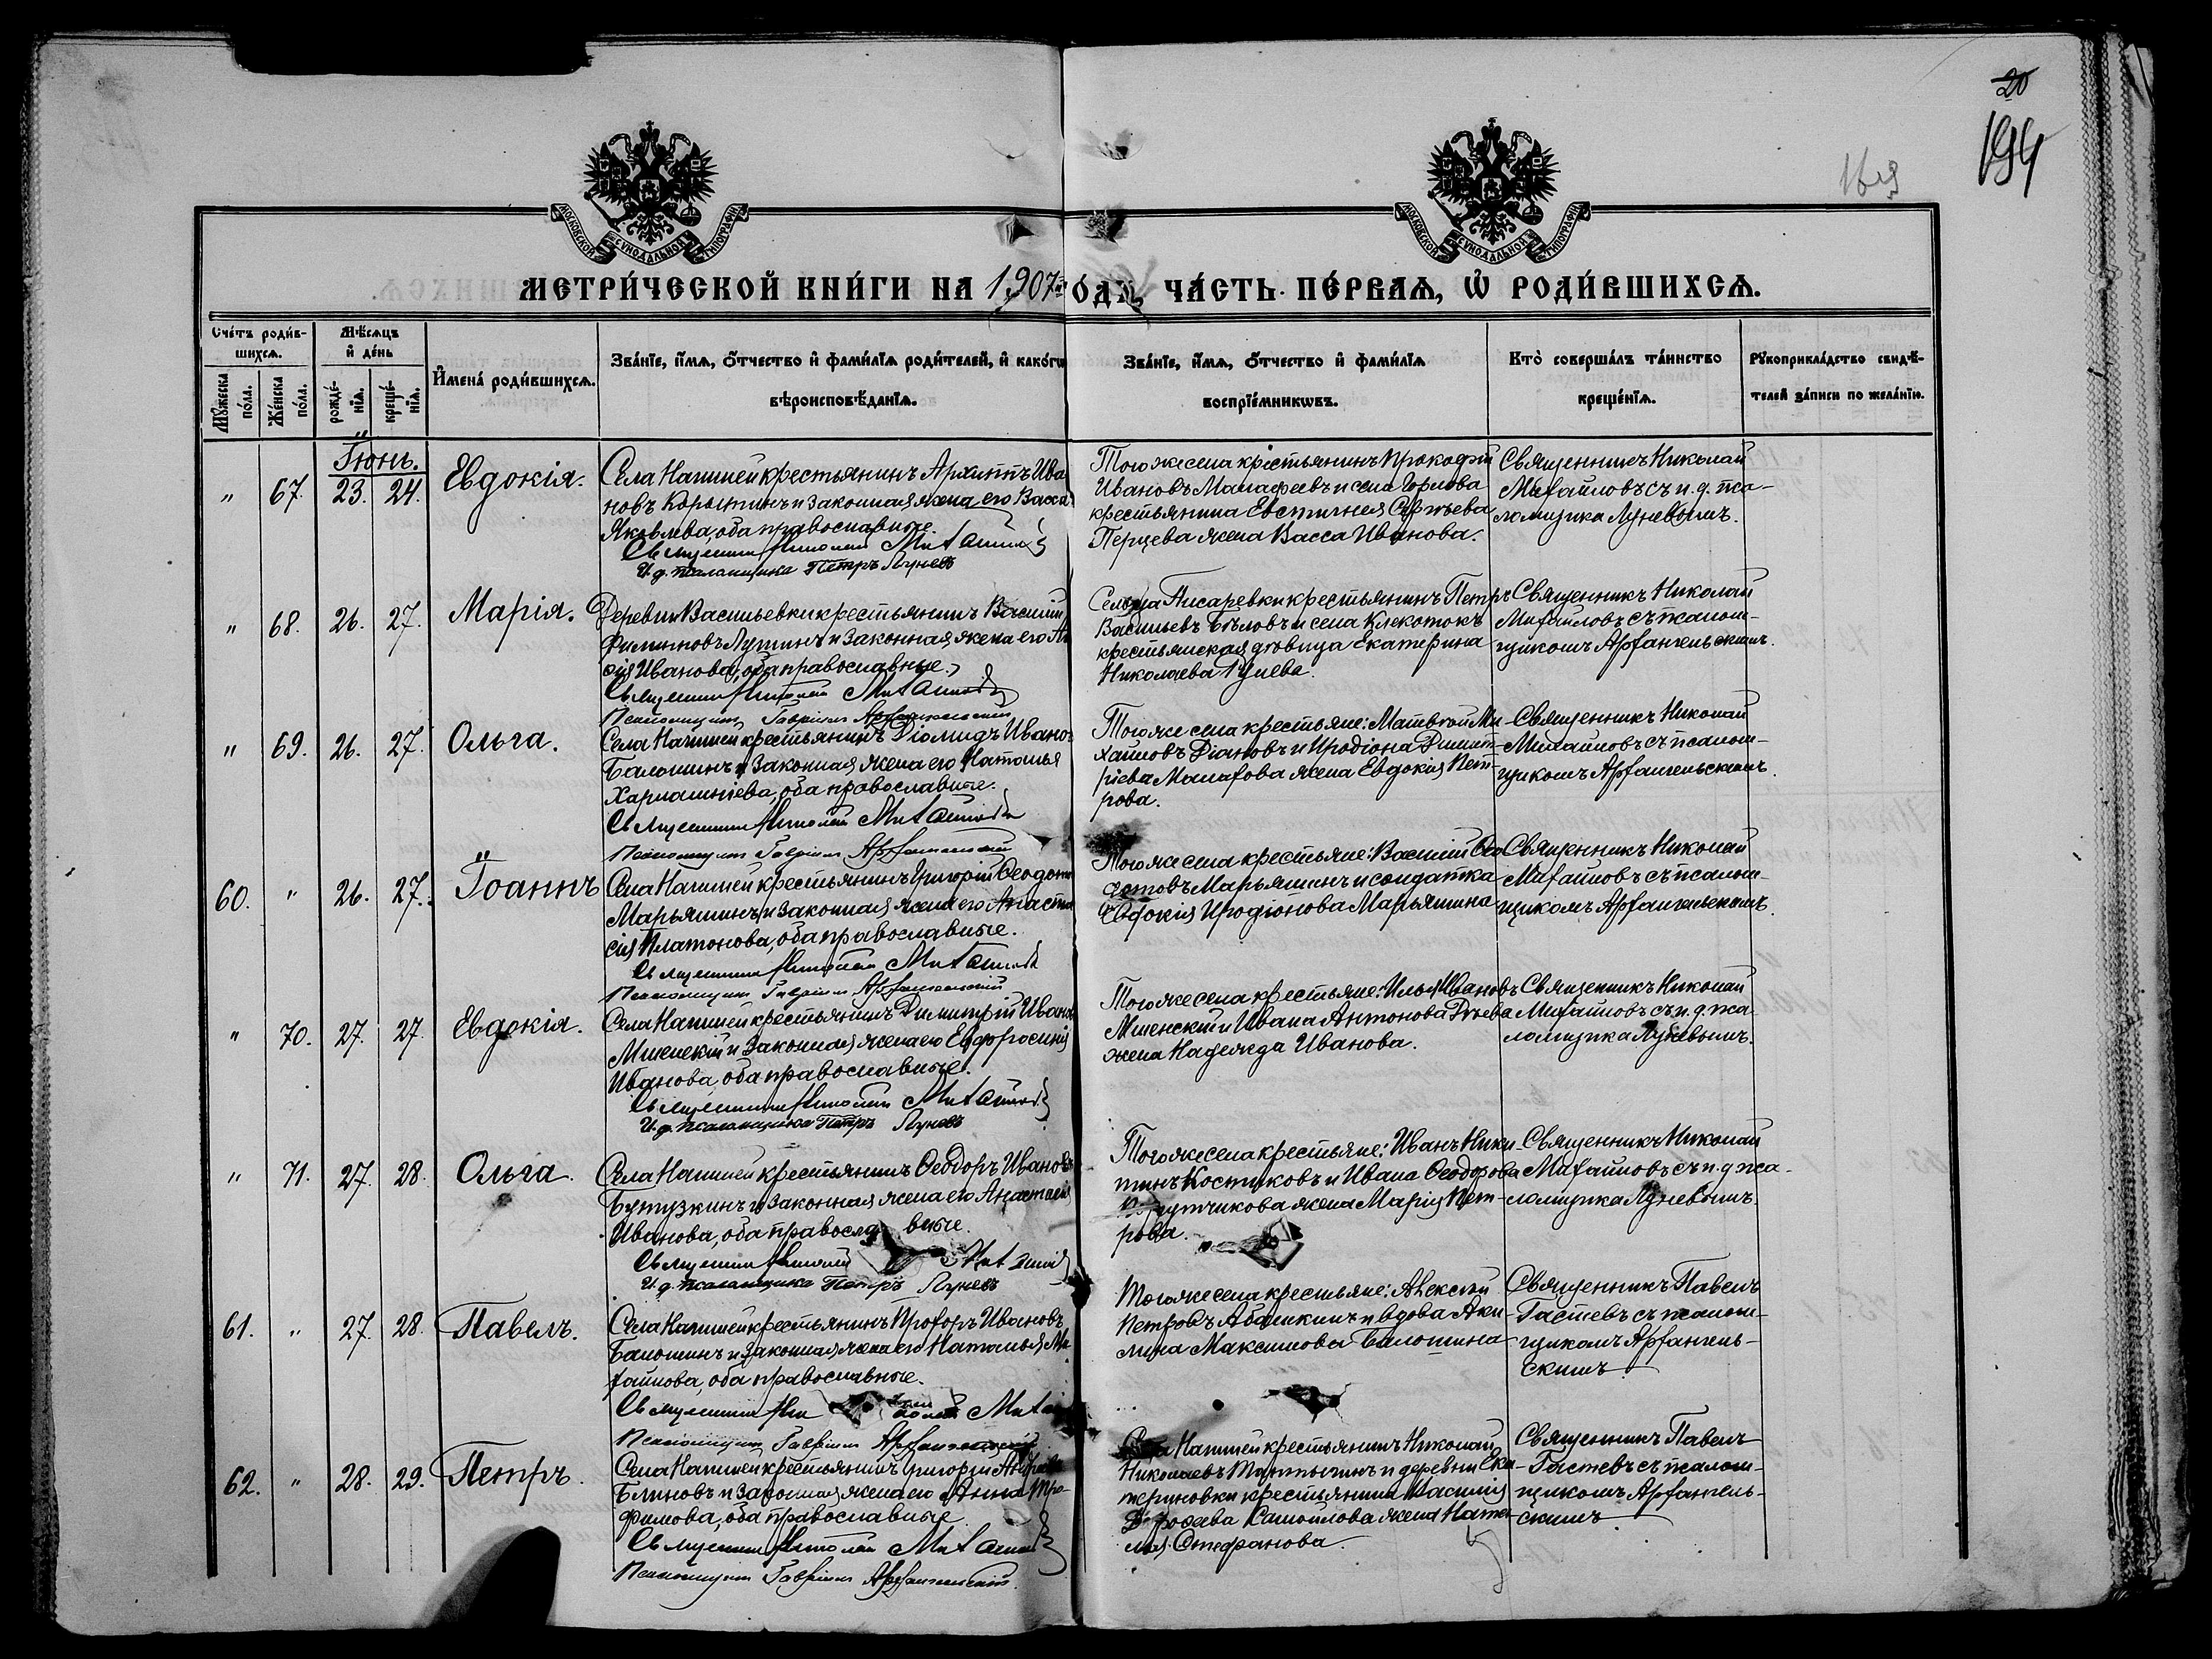 20
194
МОСКОВСКОЙ СУНОДАЛЬНОЙ ТИПОГРАФІИ
МОСКОВСКОЙ СУНОДАЛЬНОЙ ТИПОГРАФІИ
МЕТРИ́ЧЕСКОЙ КНИ́ГИ НА 1907 ГОДЪ, ЧА́СТЬ ПЕ́РВАѦ, Ѡ РОДИ́ВШИХСѦ.
Сче́тъ роди́в-
шихсѧ.
Мѣ́сѧцъ
и де́нь
Мꙋ́жеска
по́ла.
Же́нска
по́ла.
рожде́-
нїѧ.
креще́-
нїѧ.
И҆мена̀ роди́вшихсѧ.
Зва́нїе, и҆́мѧ, ѻ҆́тчество и҆ фами́лїѧ роди́телей, и҆ како́гѡ
вѣроисповѣ́данїѧ.
Зва́нїе, и҆́мѧ, ѻ҆́тчество и҆ фами́лїѧ
воспрїе́мникѡвъ.
Кто̀ соверша́лъ та́инство
креще́нїѧ.
Рꙋкоприкла́дство свидѣ́-
телей за́писи по жела́нїю.
Іюнь.
" 67. 23. 24. Евдокія.
Села Напшеи крестьянинъ Архиппъ Ива
новъ Корытинъ и законная жена его Васса
Яковлева, оба православные.
Священникъ Николай Михайловъ
И.д. псаломщика Петръ Луневъ
Того же села крестьянинъ Прокофій
Ивановъ Малафеевъ и села Горлова
крестьянина Евстигнея Сергѣева
Перцева жена Васса Иванова.
Священникъ Николай
Михайловъ съ и. д. пса-
ломщика Луневымъ.
" 68. 26. 27. Марія.
Деревни Васильевки крестьянинъ Василій
Филипповъ Лутинъ и законная жена его
сія Иванова, оба православные.
Священникъ Николай Михайловъ
Псаломщикъ Гавріилъ Архангельскій
Сельца Писаревки крестьянинъ Петръ
Васильевъ Бѣловъ и села Клекотокъ
крестьянская дѣвица Екатерина
Николаева
Священникъ Николай
Михайловъ съ псалом-
щикомъ Архангельскимъ.
" 69. 26. 27. Ольга.
Села Напшеи крестьянинъ Діомидъ Ивановъ
Балошинъ и законная жена его Наталья
Харлампіева, оба православные.
Священникъ Николай Михайловъ
Псаломщикъ Гавріилъ Архангельскій
Того же села крестьяне: Матвѣй Ми-
хайловъ Діановъ и Иродіона Димит-
ріева Малахова жена Евдокія Пет-
рова.
Священникъ Николай
Михайловъ съ псалом-
щикомъ Архангельскимъ.
60. " 26. 27. Іоаннъ
Села Напшеи крестьянинъ Григорій Ѳеодотовъ
Марьяшинъ и законная жена его Анаста
сія Платонова, оба православные.
Священникъ Николай Михайловъ
Псаломщикъ Гавріилъ Архангельскій
Того же села крестьяне: Василій Ѳео
дотовъ Марьяшинъ и солдатка
Евдокія Иродіонова Марьяшина
Священникъ Николай
Михайловъ съ псалом-
щикомъ Архангельскимъ.
" 70. 27. 27. Евдокія.
Села Напшеи крестьянинъ Димитрій Ивановъ
Мшенскій и законная жена его Евфросинія
Иванова, оба православные.
Священникъ Николай Михайловъ
И.д. псаломщика Петръ Луневъ
Того же села крестьяне: Илья Ивановъ
Мшенскій и Ивана Антонова Дѣева
жена Надежда Иванова.
Священникъ Николай
Михайловъ съ и. д. пса
ломщика Луневымъ.
" 71. 27. 28. Ольга.
Села Напшеи крестьянинъ Ѳеодоръ Ивановъ
Бутузкинъ и законная жена его Анастасія
Иванова, оба православные.
Священникъ Николай Михайловъ
И.д. псаломщика Петръ Луневъ
Того же села крестьяне: Иванъ Ники-
тинъ Костиковъ и Ивана Ѳеодорова
жена Марія Пет-
рова.
Священникъ Николай
Михайловъ съ и. д. пса-
ломщика Луневымъ.
61. " 27. 28. Павелъ.
Села Напшеи крестьянинъ Прохоръ Ивановъ
Балошинъ и законная жена его Наталья Ми
хайлова, оба православные.
Священникъ Николай
Псаломщикъ Гавріилъ Архангельскій
Того же села крестьяне: Алексѣй
Петровъ Абашкинъ и вдова Аки-
лина Максимова Балошина
Священникъ Павелъ
Гастевъ съ псалом-
щикомъ Архангель-
скимъ
62. " 28. 29. Петръ.
Села Напшеи крестьянинъ Григорій
Блиновъ и законная жена его Анна Тро-
фимова, оба православные
Священникъ Николай Михайловъ
Псаломщикъ Гавріилъ Архангельскій.
Села Напшеи крестьянинъ Николай
Николаевъ и деревни Ека-
териновки крестьянина Василія
Дорофеева Самойлова жена Ната-
лія Стефанова.
Священникъ Павелъ
Гастевъ съ псалом-
щикомъ Архангель-
скимъ